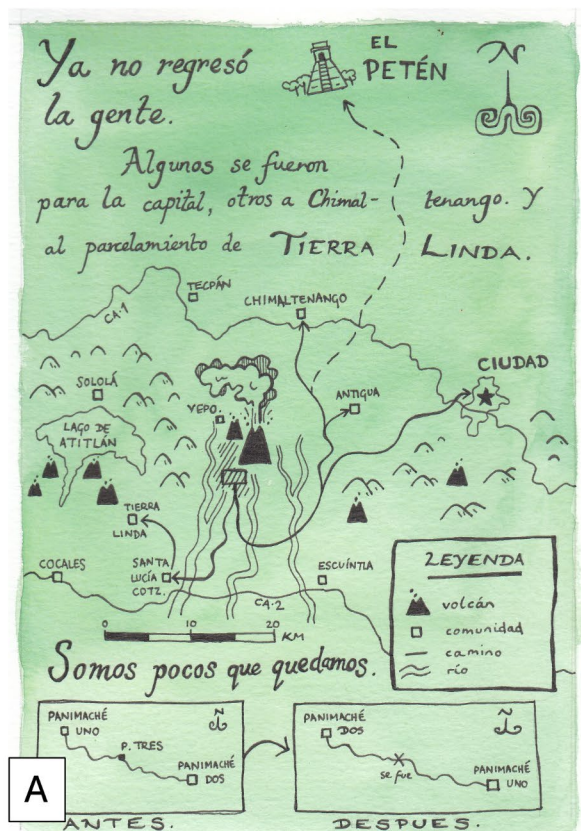 Ya no regresó
la gente.
EL
PETÉN
N
Algunos se fueron
para la capital, otros a Chimal- tenango. Y
al parcelamiento de TIERRA LINDA.
TECPÁN
CA-1
CHIMALTENANGO
CIUDAD
SOLOLÁ
YEPO.
ANTIGUA
LAGO DE
ATITLÁN
TIERRA
LINDA
COCALES
SANTA
LUCÍA
COTZ.
ESCUÍNTLA
CA-2
LEYENDA
volcán
comunidad
camino
río
0 10 20
KM
Somos pocos que quedamos.
PANIMACHÉ
UNO
P. TRES
PANIMACHÉ
DOS
Ñ
PANIMACHÉ
DOS
se fue
PANIMACHÉ
UNO
Ñ
A
ANTES.
DESPUES.